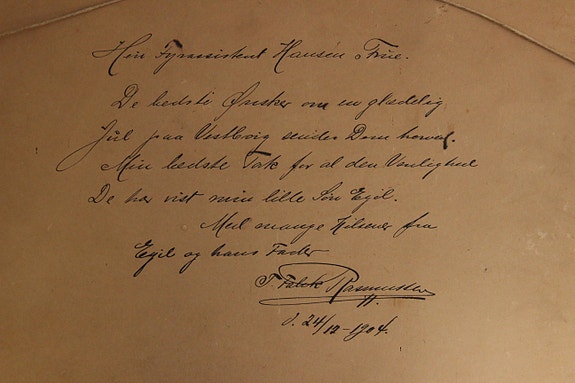 Hrn Fyrassistent Hansen & Frue.
De bedste Ønsker om en glædelig
Jul paa Vestborg sendes Dem herved.
Min bedste Tak for al den Venlighed
De har vist min lille Søn Egil.
Med mange Hilsner fra
Egil og hans Fader
F. Falck Rasmussen
d. 24/12-1904.